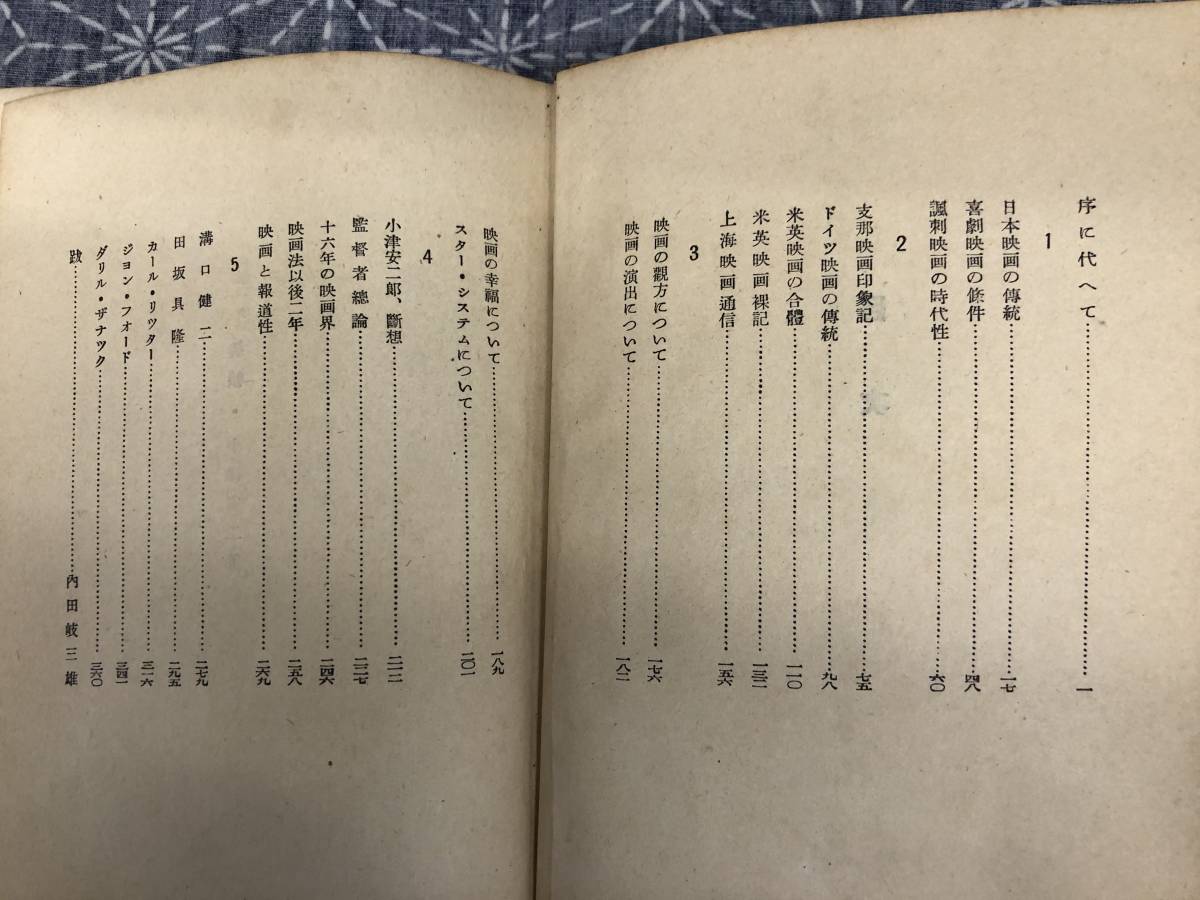 序に代へて……一
1
日本映画の傳統……一七
喜劇映画の條件……四八
諷刺映画の時代性……六〇
2
支那映画印象記……七五
ドイツ映画の傳統……九八
米英映画の合體……一一〇
米英映画裸記……一三二
上海映画通信……一五六
3
映画の觀方について……一七六
映画の演出について……一八二
映画の幸福について……一八九
スター・システムについて……二〇一
4
小津安二郎、斷想……二一二
監督者總論……二二七
十六年の映画界……二四六
映画法以後二年……二五八
映画と報道性……二六九
5
溝口健二……二七九
田坂具隆……二九五
カール・リツター……三一六
ジヨン・フオード……三四一
ダリル・ザナツク……三六〇
跋……內田岐三雄